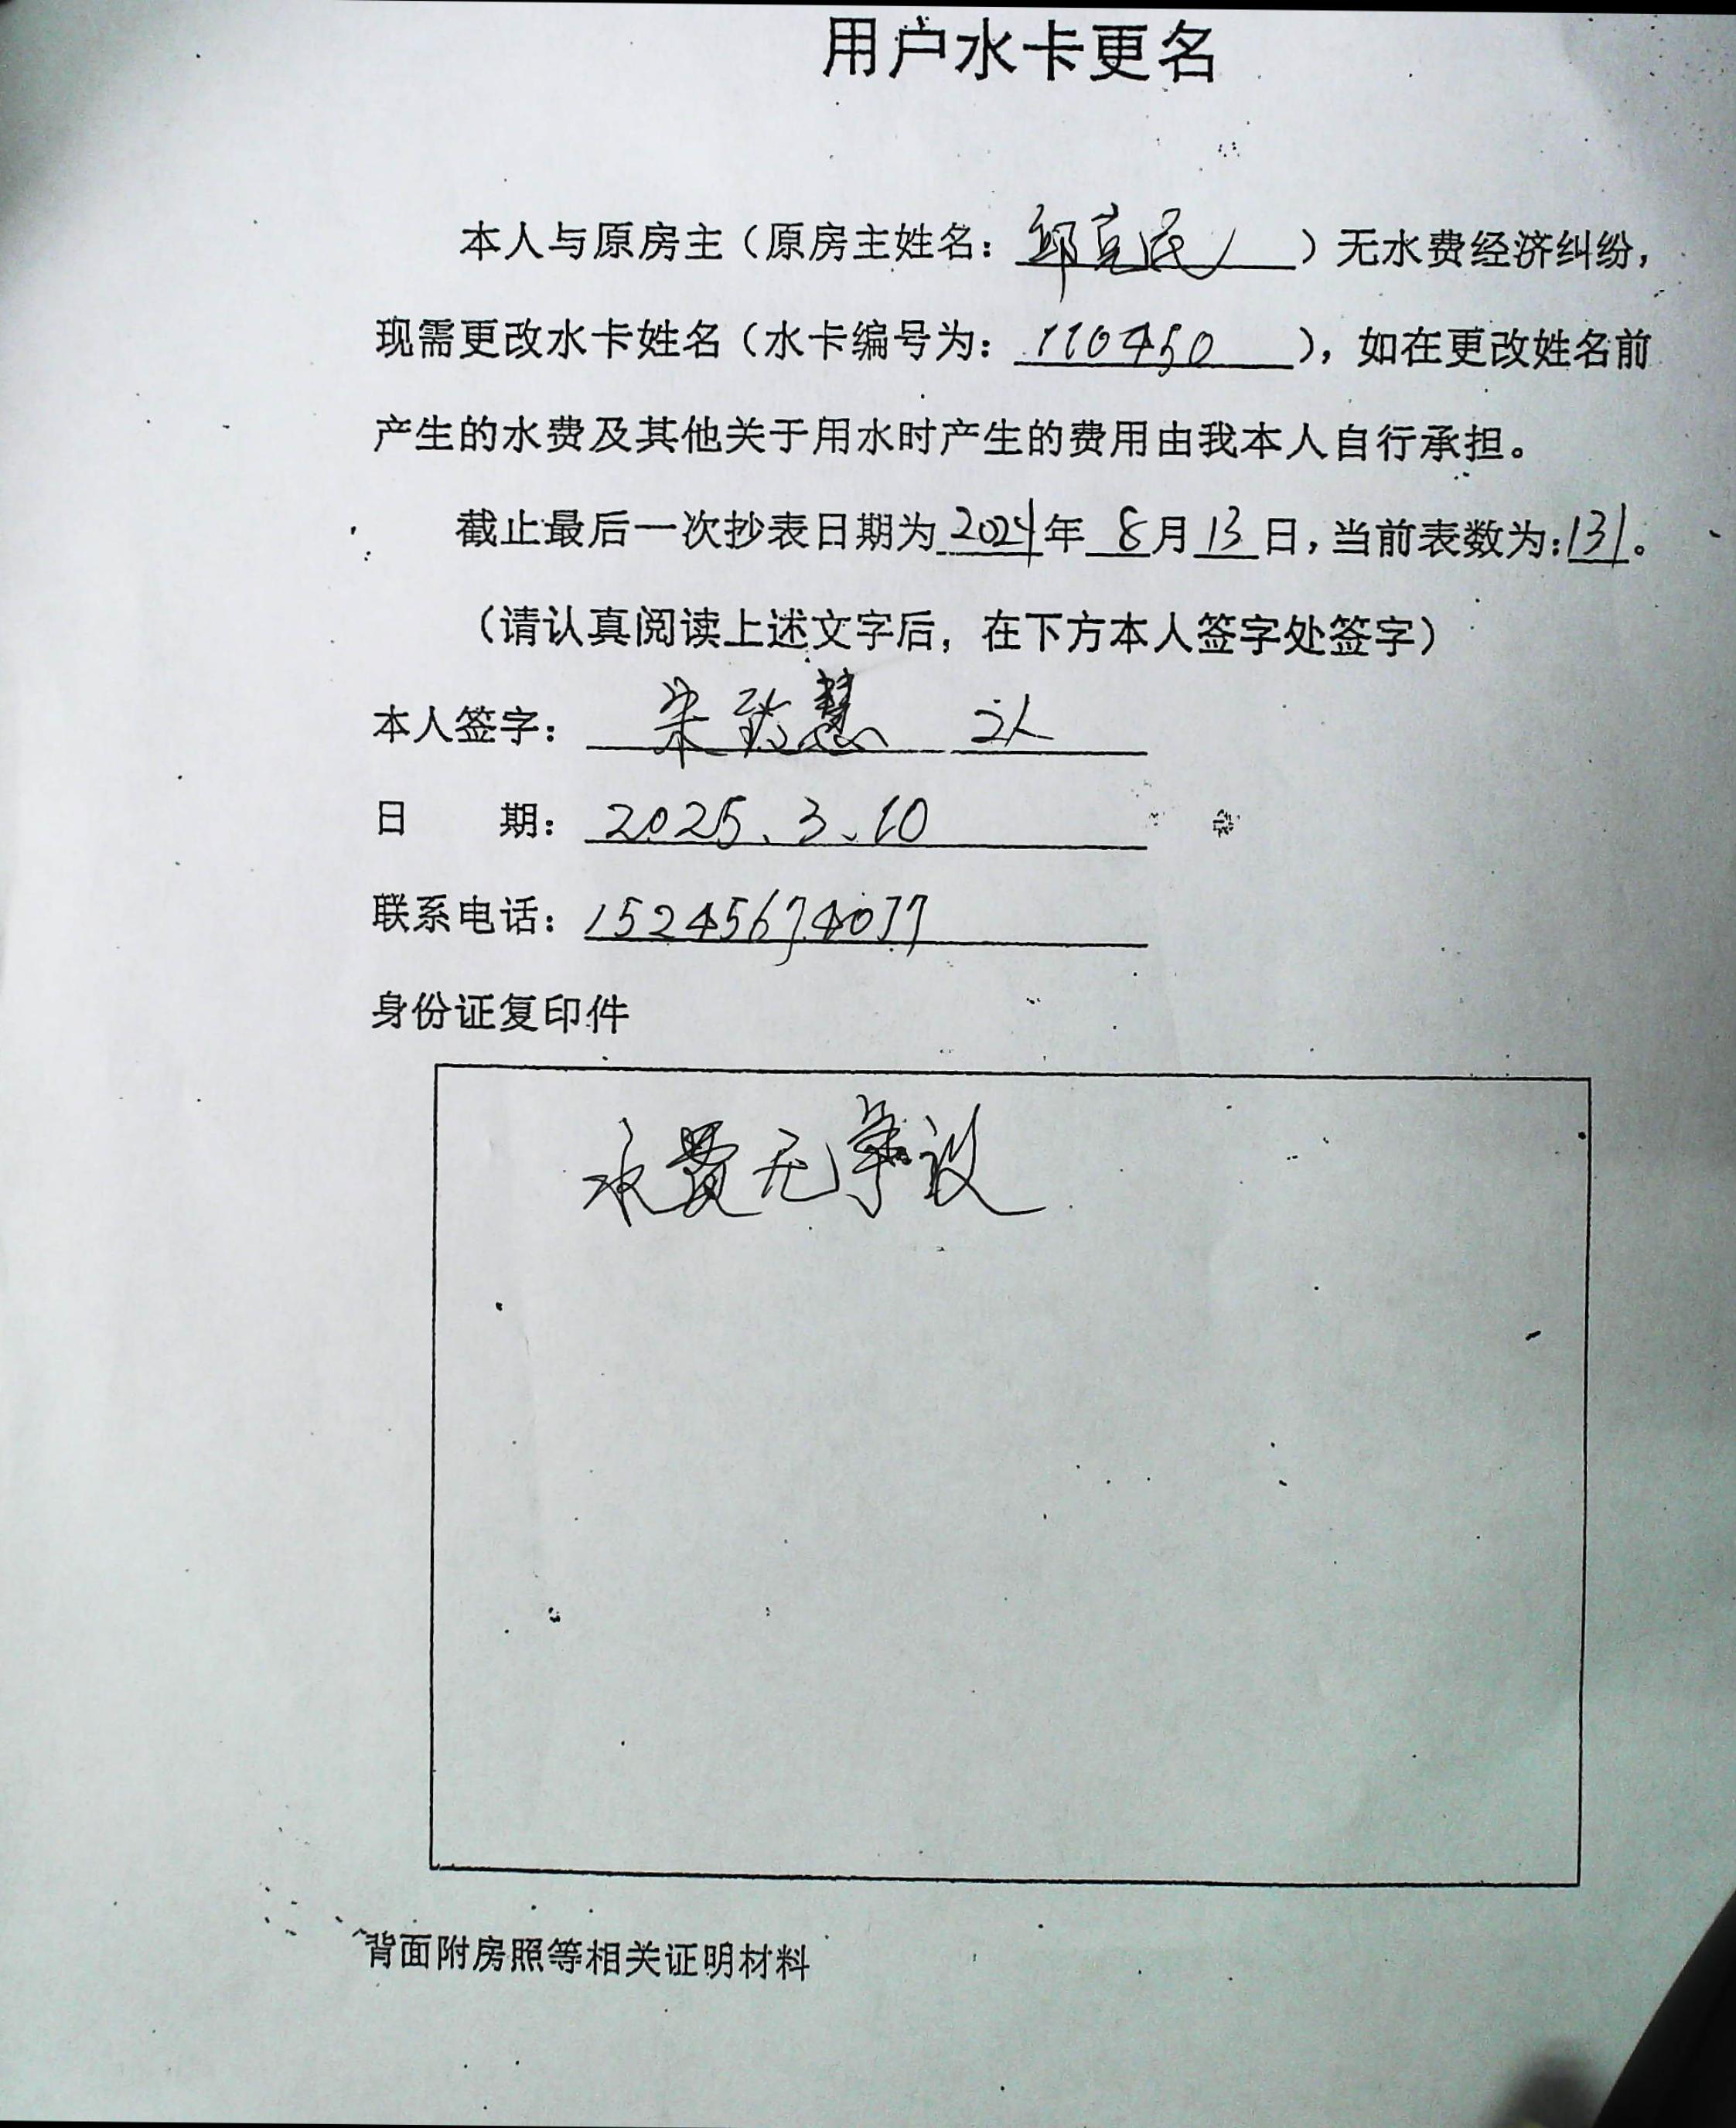 用户水卡更名
本人与原房主（原房主姓名：邱克成）无水费经济纠纷，
现需更改水卡姓名（水卡编号为：110450），如在更改姓名前
产生的水费及其他关于用水时产生的费用由我本人自行承担。
截止最后一次抄表日期为2024年8月13日，当前表数为：131。
（请认真阅读上述文字后，在下方本人签字处签字）
本人签字：宋 慧 2人
日 期：2025.3.10
联系电话：15245674077
身份证复印件
水费无争议
背面附房照等相关证明材料